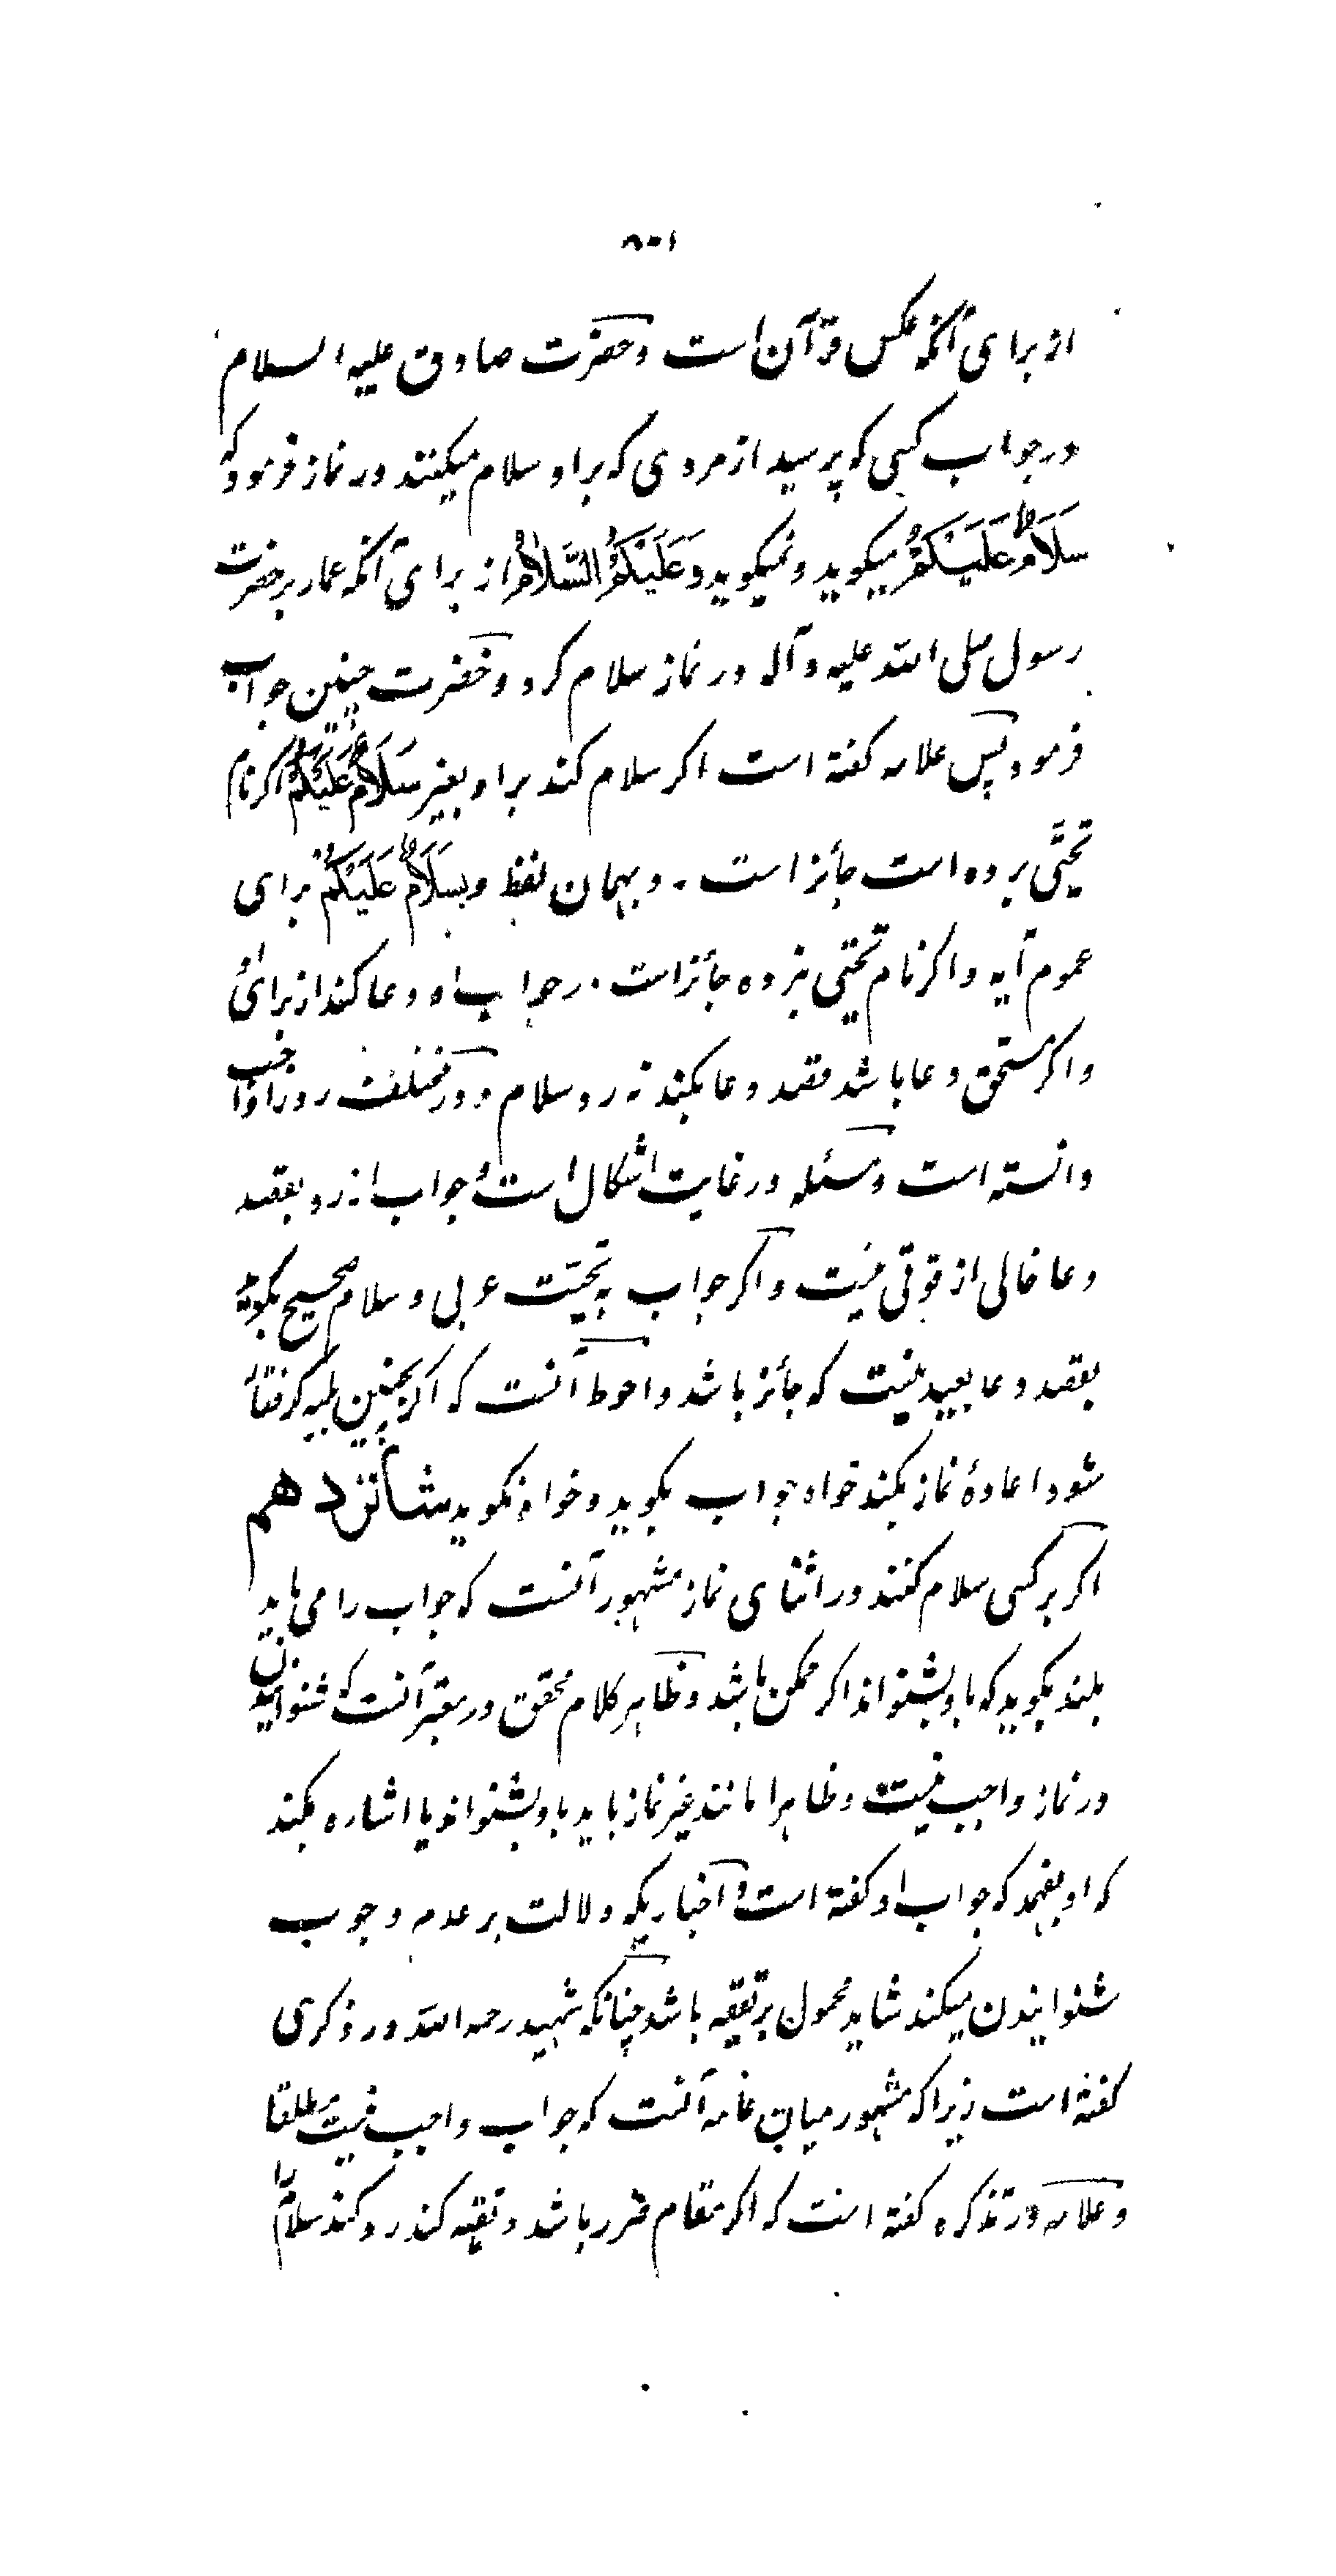 ۸۰۱
از برای آنکه عکس قرآن است و حضرت صادق علیه السلام
در جواب کسی که پرسید از مردی که بر او سلام میکنند در نماز فرمود که
سَلَامٌ عَلَیْکُمْ میکوید و نمیکوید وَ عَلَیْکُمُ السَّلَامُ از برای آنکه عمار بر حضرت
رسول صلی الله علیه و آله در نماز سلام کرد و حضرت چنین جواب
فرمود پس علامه کفته است اکر سلام کند بر او بغیر سَلَامٌ عَلَیْکُمْ اکر نام
تحیّتی برده است جائز است . و بهمان لفظ و بسَلَامٌ عَلَیْکُمْ برای
عموم آیه و اکر نام تحیّتی نبرده جائز است رد جواب او و دعا کند از برای او
و اکر مستحق دعا باشد قصد دعا بکند نه رد سلام و در مختلف رد را واجب
دانسته است و مسئله در غایت اشکال است و جواب از رد بقصد
دعا خالی از قوتی نیست و اکر جواب به تحیّت عربی و سلام صحیح بکوید
بقصد دعا بعید نیست که جائز باشد و احوط آنست که اکر بچنین بلیه کرفتار
شود اعادهٔ نماز بکند خواه جواب بکوید و خواه نکوید شانزدهم
اکر بر کسی سلام کنند در اثنای نماز مشهور آنست که جواب را می باید
بلند بکوید که باو بشنواند اکر ممکن باشد و ظاهر کلام محقق در معتبر آنست که شنوانیدن
در نماز واجب نیست و ظاهرا مانند غیر نماز باید باو بشنواند یا اشاره بکند
که او بفهمد که جواب او کفته است و اخباریکه دلالت بر عدم وجوب
شنوانیدن میکند شاید محمول بر تقیه باشد چنانکه شهید رحمه الله در ذکری
کفته است زیرا که مشهور میان عامه آنست که جواب واجب نیست مطلقا
و علامه در تذکره کفته است که اکر مقام ضرر باشد و تقیه کند رد کند سلام را